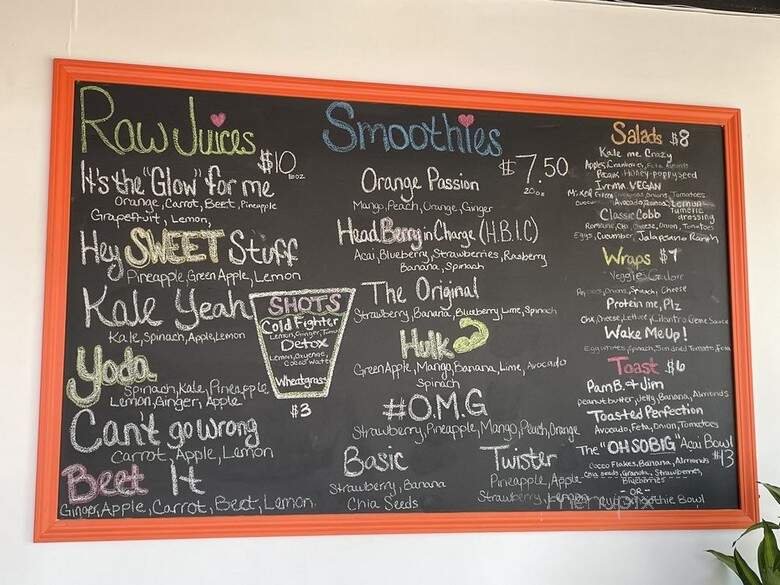 Raw Juices
$10
It's the "Glow" for me
Orange, Carrot, Beet, Pineapple
Grapefruit, Lemon,
Hey SWEET Stuff
Pineapple, Green Apple, Lemon
Kale Yeah
Kale, Spinach, Apple, Lemon
Yoda
Spinach, Kale, Pineapple
Lemon, Ginger, Apple
Can't go wrong
Carrot, Apple, Lemon
Beet It
Ginger, Apple, Carrot, Beet, Lemon
SHOTS
Cold Fighter
Lemon, Ginger,
Detox
Wheatgrass
$3
Smoothies
$7.50
20oz
Orange Passion
Mango, Peach, Orange, Ginger
Head Berry in Charge (H.B.I.C)
Acai, Blueberry, Strawberries, Rasberry
Banana, Spinach
The Original
Strawberry, Banana, Blueberry, Lime, Spinach
Hulk
Green Apple, Mango, Banana, Lime, Avocado
Spinach
#O.M.G
Strawberry, Pineapple, Mango, Peach, Orange
Basic
Strawberry, Banana
Chia Seeds
Twister
Pineapple, Apple
Strawberry,
Salads $8
Kale me Crazy
Honey-poppyseed
Irmma VEGAN
Tomatoes
Avocado, Quinoa, Lemon
Tumeric
dressing
Classic Cobb
Cheese, Onion, Tomatoes
Eggs, Cucumber, Jalapeno Ranch
Wraps $7
Veggies Galore
Spinach, Cheese
Protein me, Plz
Cheese, Lettuce, Cilantro
Wake Me Up!
Egg whites, Spinach, Sundried Tomato, Feta
Toast $6
Pam B. + Jim
peanut butter, Jelly, Banana, Almonds
Toasted Perfection
Avocado, Feta, Onion, Tomatoes
The "OH SO BIG" Acai Bowl
$13
Coco Flakes, Banana, Almonds
Chia seeds, Granola, Strawberries,
Blueberries
- OR -
Smoothie Bowl